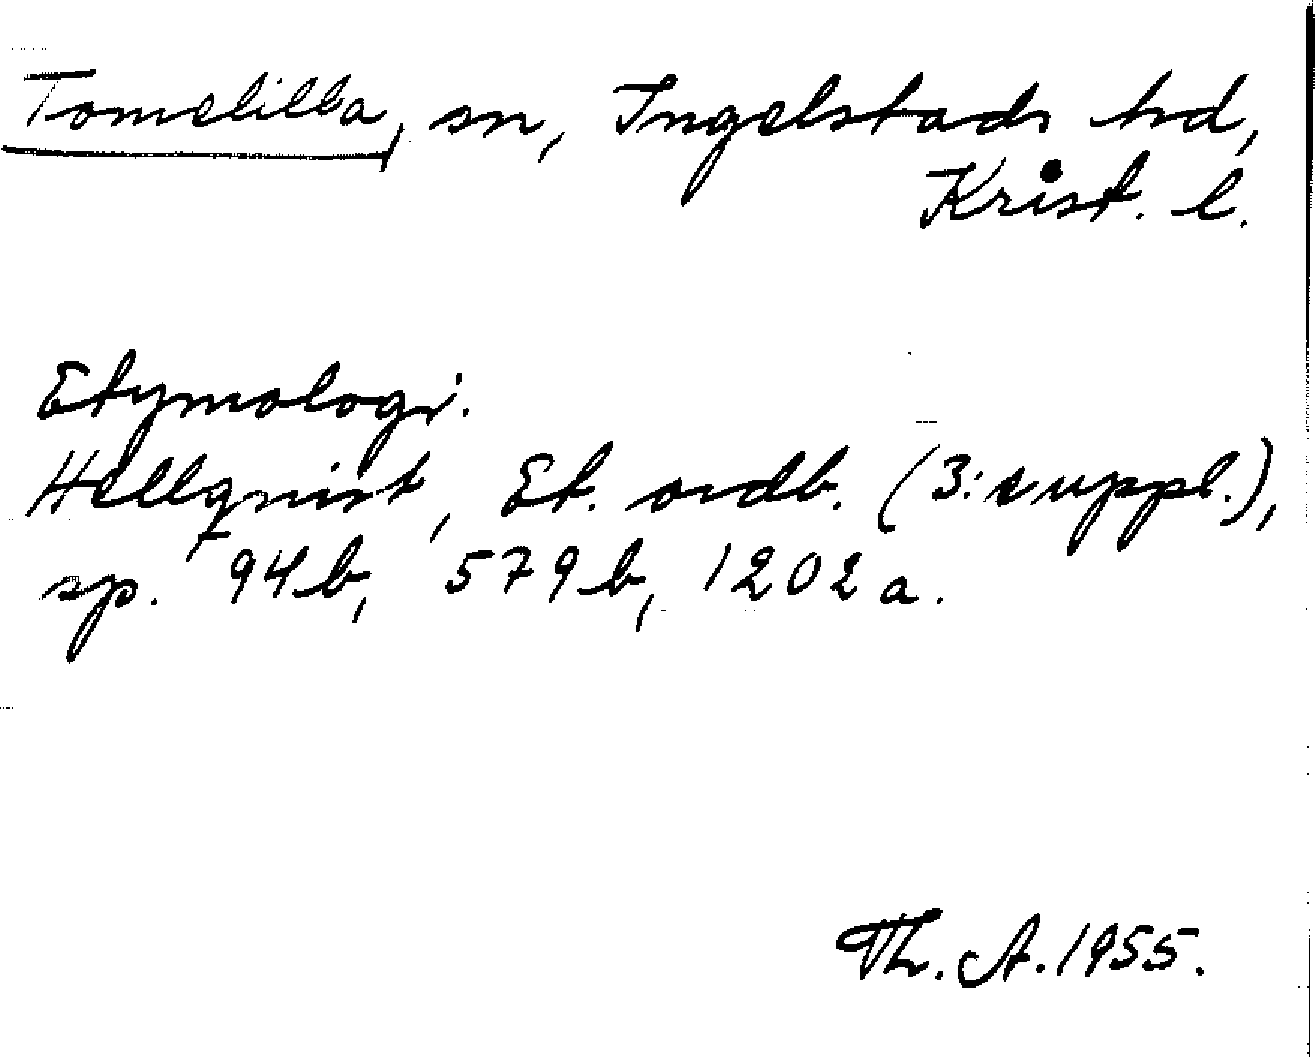 Tomelilla, sn, Ingelstads hd,
Krist. l.
Etymologi.
Hellqvist, Et. ordb. (3:e uppl.),
sp. 94b, 579b, 1202a.
Th. A. 1955.